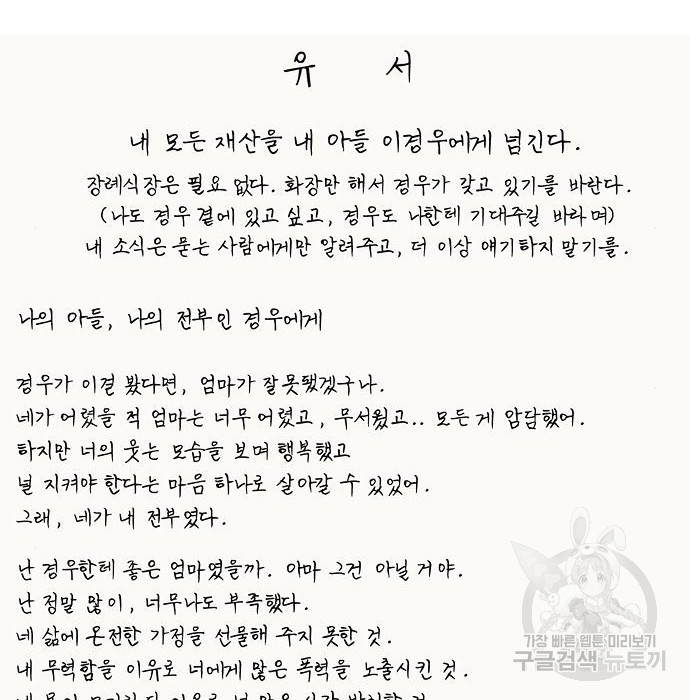 유 서
내 모든 재산을 내 아들 이경우에게 넘긴다.
장례식장은 필요 없다. 화장만 해서 경우가 갖고 있기를 바란다.
(나도 경우 곁에 있고 싶고, 경우도 나한테 기대주길 바라며)
내 소식은 묻는 사람에게만 알려주고, 더 이상 얘기하지 말기를.
나의 아들, 나의 전부인 경우에게
경우가 이걸 봤다면, 엄마가 잘못됐겠구나.
네가 어렸을 적 엄마는 너무 어렸고, 무서웠고.. 모든 게 암담했어.
하지만 너의 웃는 모습을 보며 행복했고
널 지켜야 한다는 마음 하나로 살아갈 수 있었어.
그래, 네가 내 전부였다.
난 경우한테 좋은 엄마였을까. 아마 그건 아닐 거야.
난 정말 많이, 너무나도 부족했다.
네 삶에 온전한 가정을 선물해 주지 못한 것.
내 무력함을 이유로 너에게 많은 폭력을 노출시킨 것.
가장 빠른 웹툰 미리보기
구글검색 뉴토끼